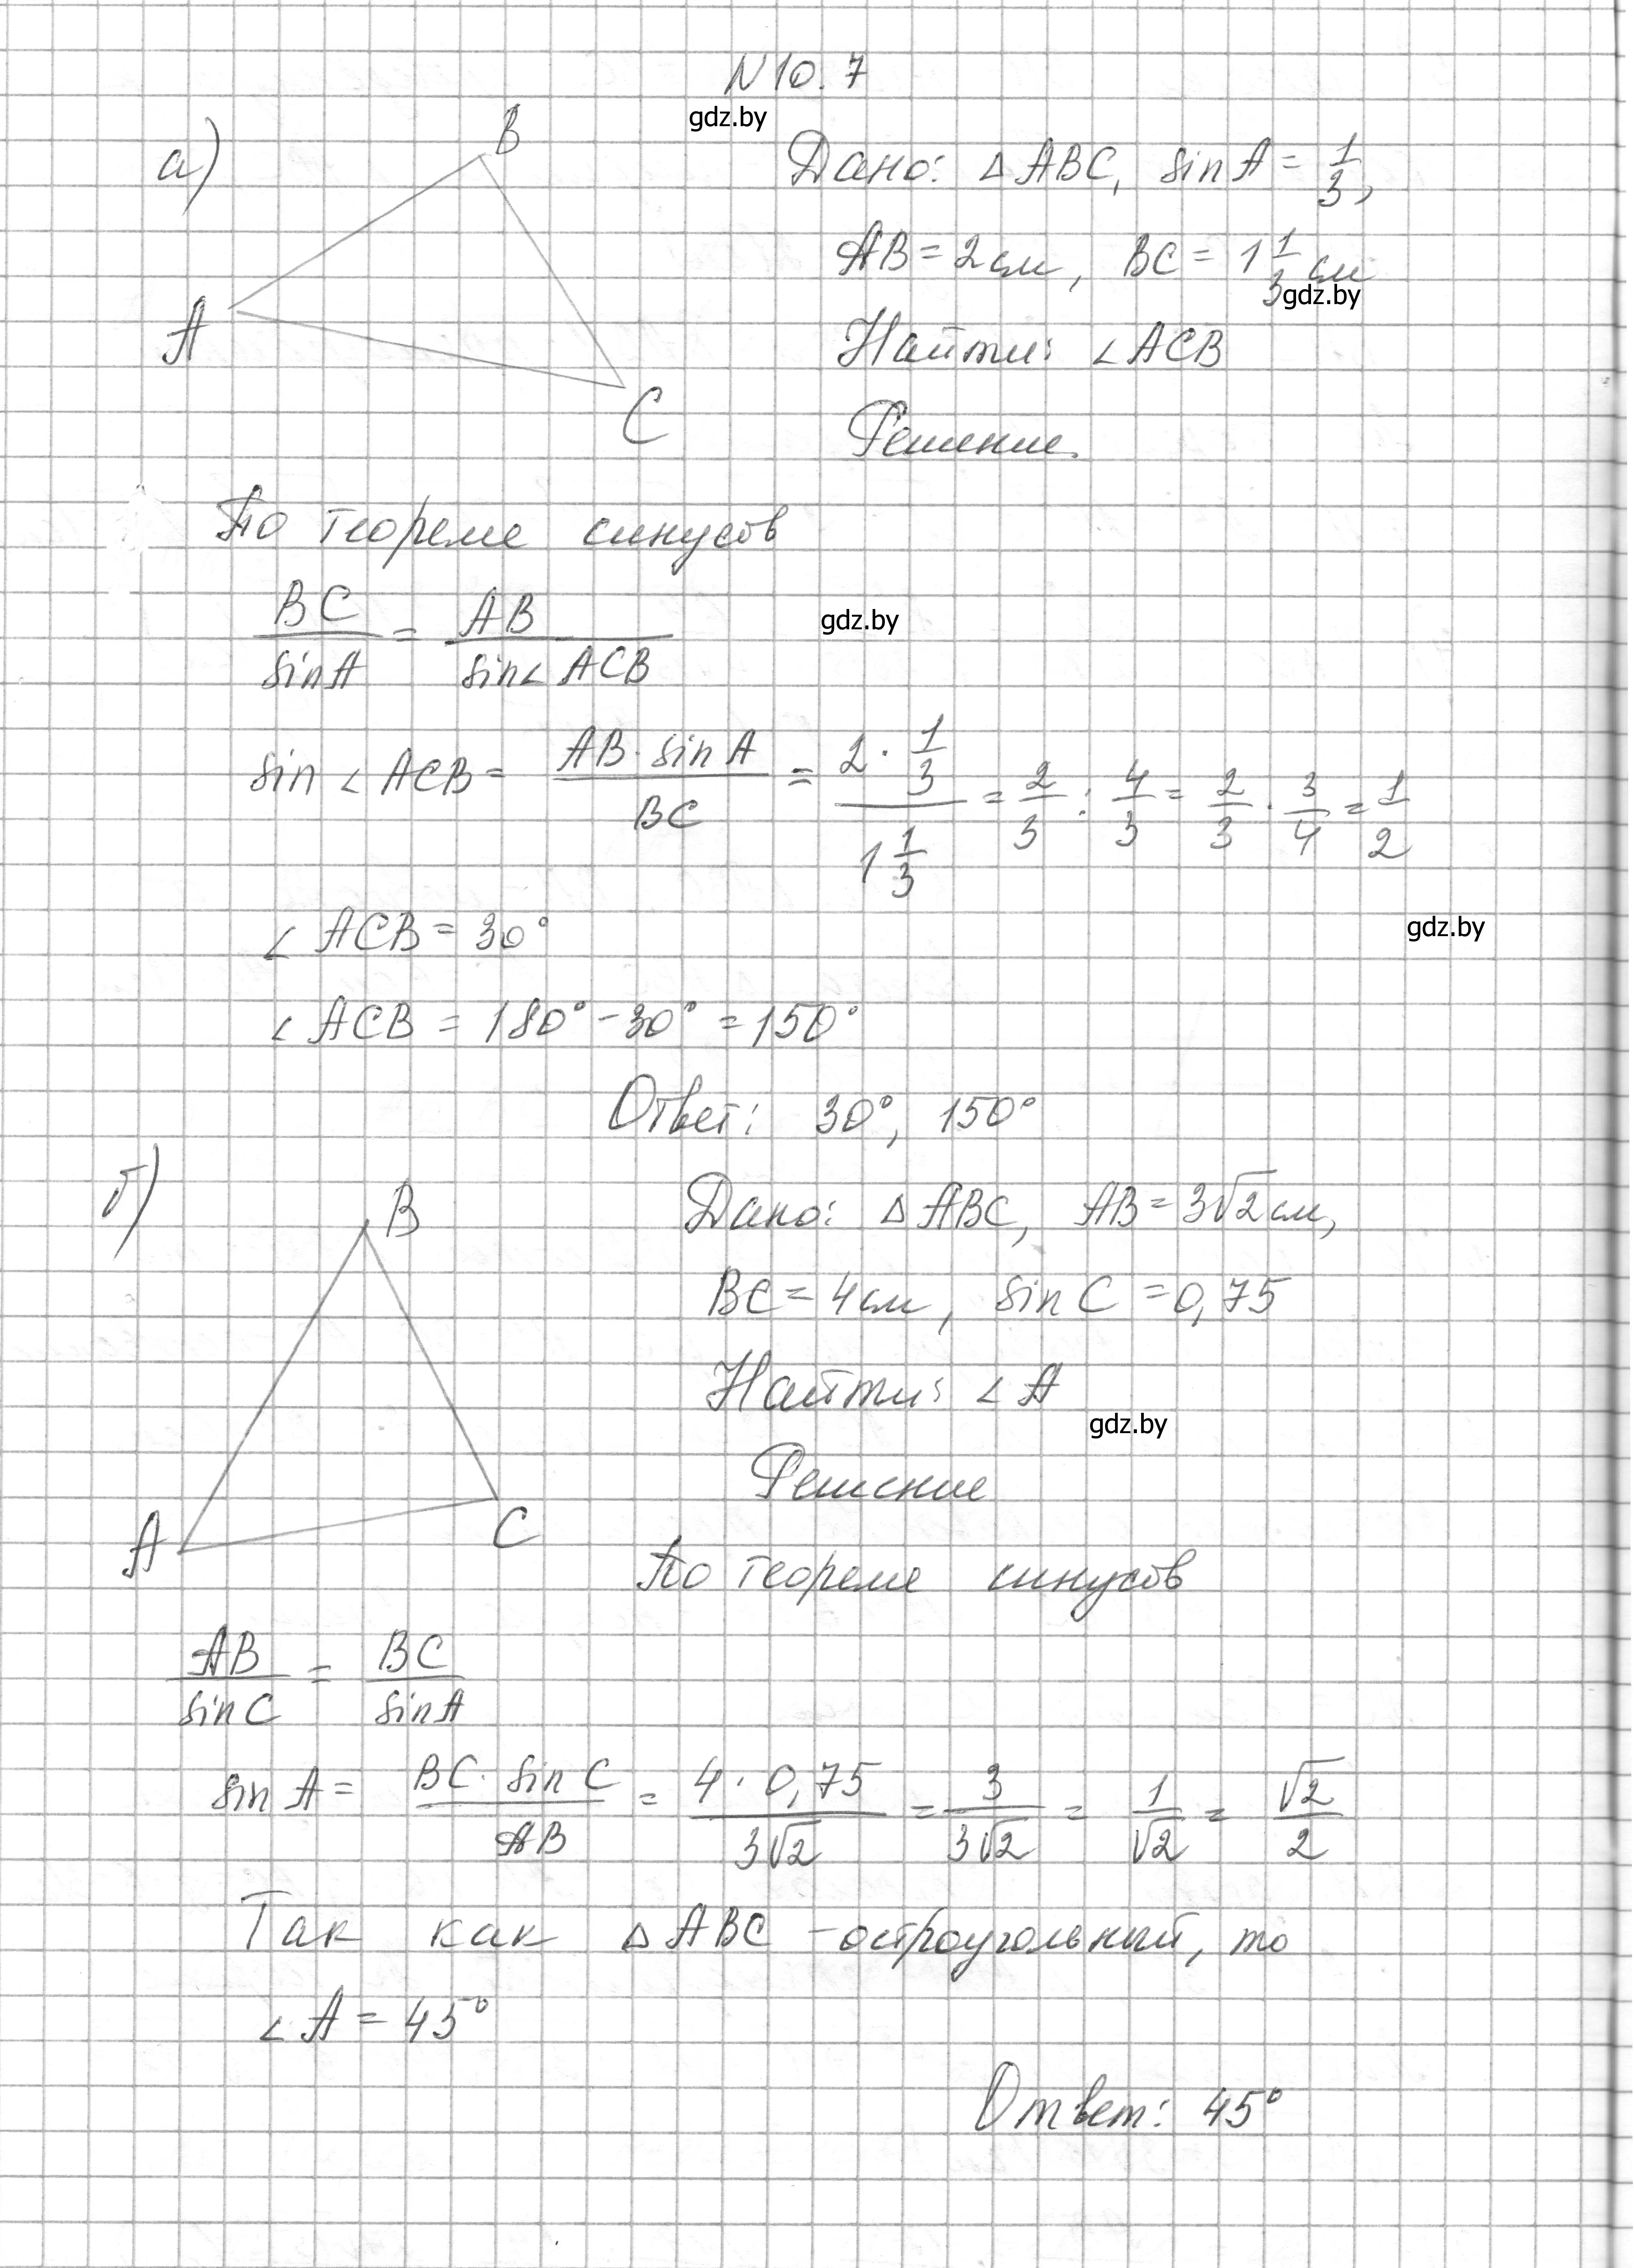 N 10.7
gdz.by
а)
B
A
C
Дано: △ABC, sin A = 1/3,
AB = 2 см, BC = 1 1/3 см
gdz.by
Найти: ∠ACB
Решение.
По теореме синусов
BC/sin A = AB/sin∠ACB
gdz.by
sin∠ACB = AB · sin A/BC = 2 · 1/3 / 1 1/3 = 2/3 : 4/3 = 2/3 · 3/4 = 1/2
∠ACB = 30°
gdz.by
∠ACB = 180° - 30° = 150°
Ответ: 30°, 150°
б)
B
A
C
Дано: △ABC, AB = 3√2 см,
BC = 4 см, sin C = 0,75
Найти: ∠A
gdz.by
Решение
По теореме синусов
AB/sin C = BC/sin A
sin A = BC · sin C/AB = 4 · 0,75/3√2 = 3/3√2 = 1/√2 = √2/2
Так как △ABC - остроугольный, то
∠A = 45°
Ответ: 45°